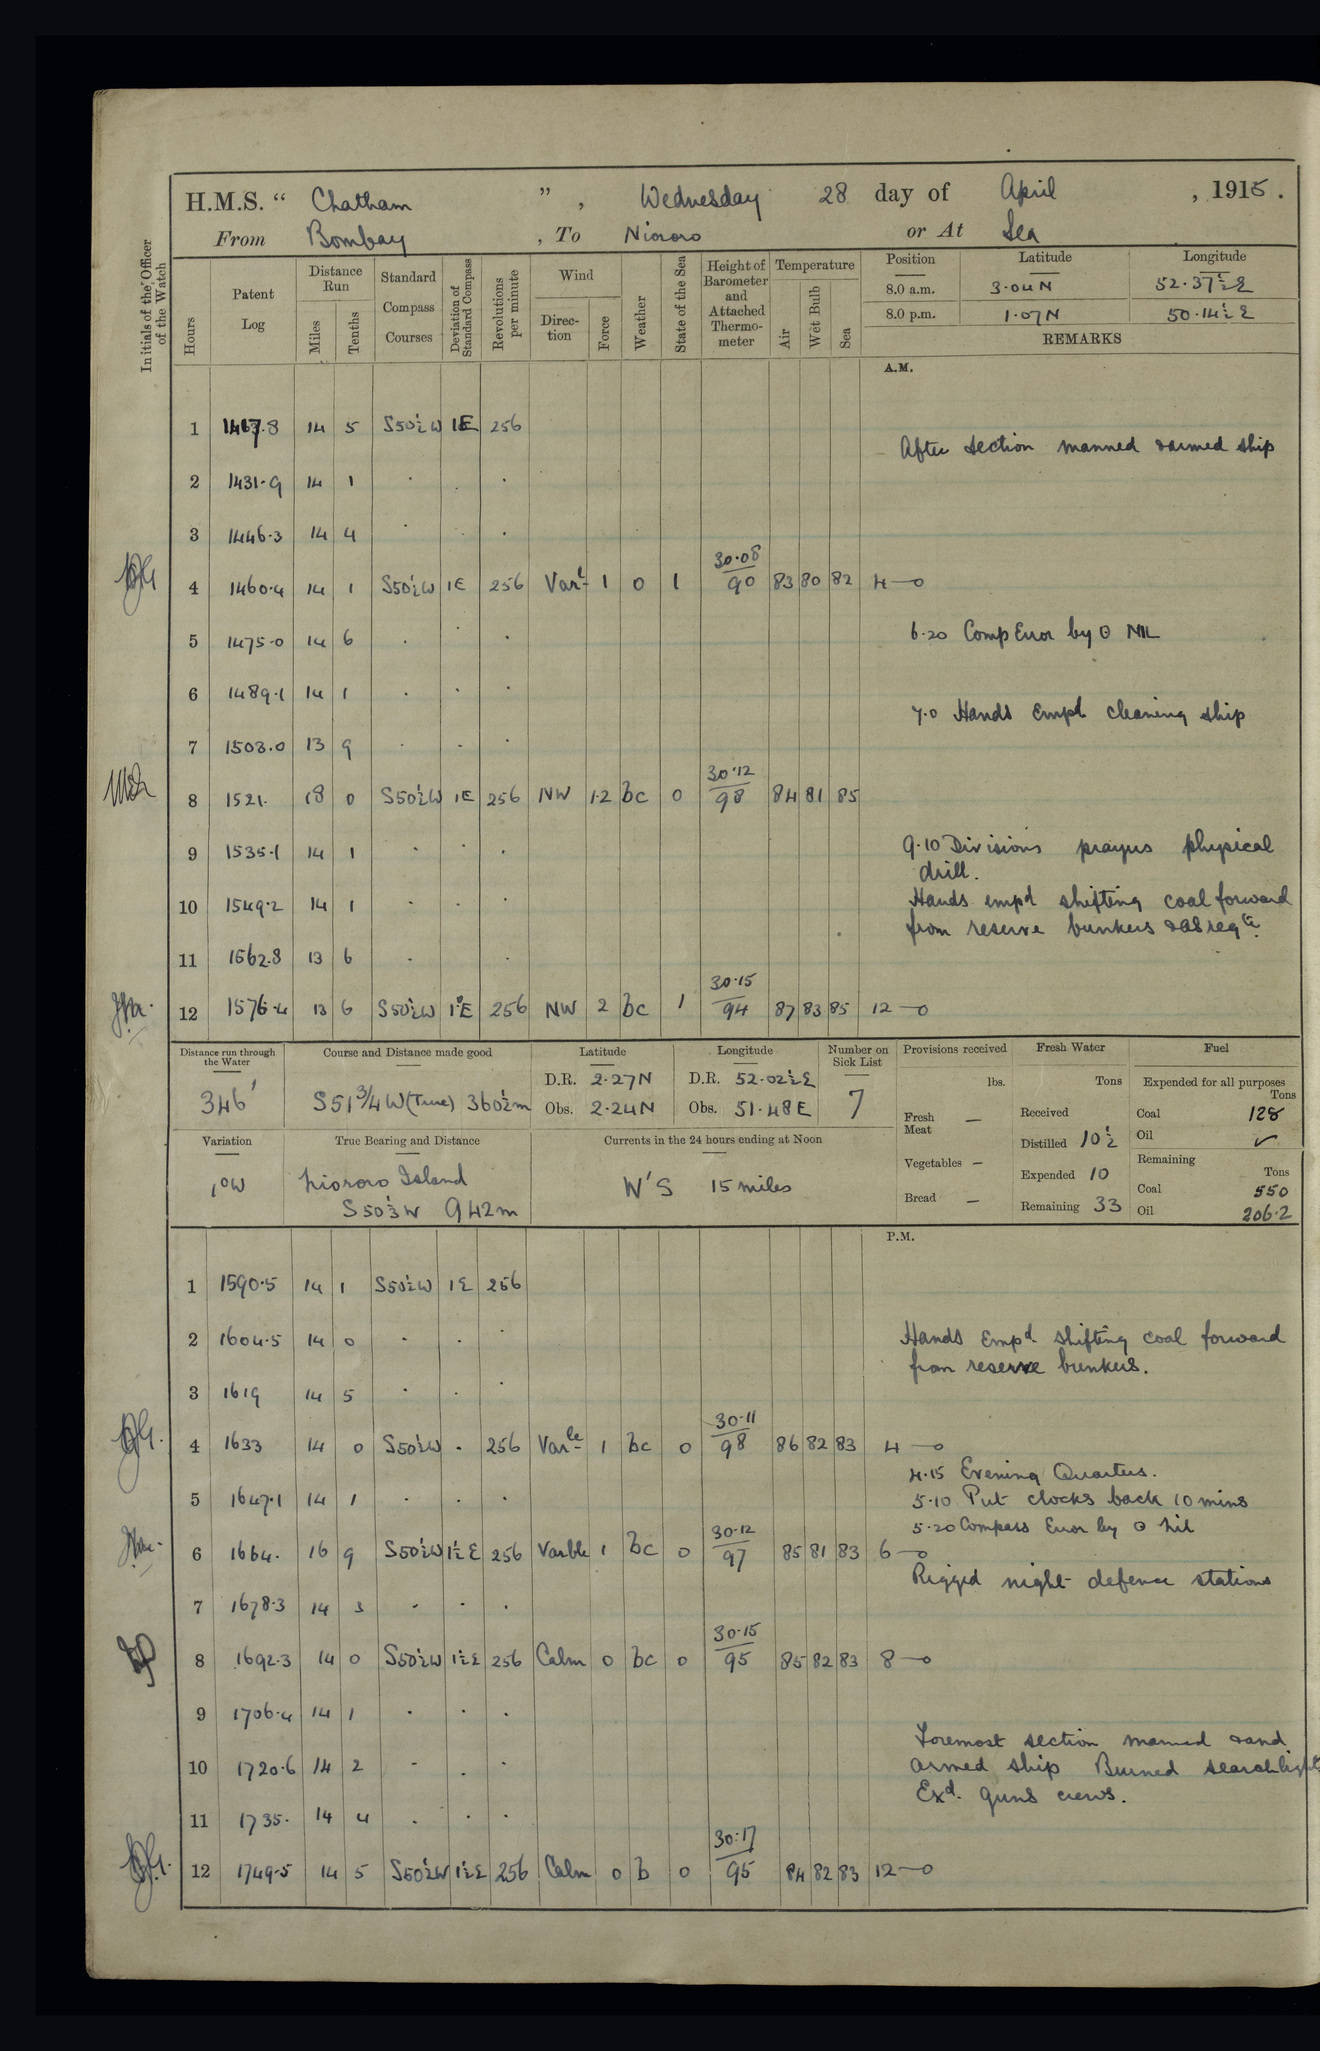 H.M.S. “ Chatham ” , Wednesday 28 day of April , 1915 .
From Bombay , To Niororo or At Sea
Initials of the Officer of the Watch
Hours
Patent Log
Distance Run
Miles
Tenths
Standard Compass Courses
Deviation of Standard Compass
Revolutions per minute
Wind
Direction
Force
Weather
State of the Sea
Height of Barometer and Attached Thermometer
Temperature
Air
Wet Bulb
Sea
Position Latitude Longitude
8.0 a.m. 3.04 N 52.37½ E
8.0 p.m. 1.07 N 50.14½ E
REMARKS
A.M.
1 14 5 S50½W 1E 256
After section manned & armed ship
2 1431.9 14 1 . . .
3 1446.3 14 4 . .
4 1460.4 14 1 S50½W 1E 256 Varl 1 0 1 30.08/90 83 80 82 4—0
5 1475.0 14 6 . . . 6.20 Comp Error by ⊙ NIL
6 1489.1 14 1 . . .
7.0 Hands Empd cleaning ship
7 1503.0 13 9 . . .
8 1521. 18 0 S50½W 1E 256 NW 1.2 bc 0 30.12/98 84 81 85
9 1535.1 14 1 . . . 9.10 Divisions prayers physical
drill.
10 1549.2 14 1 . . . Hands empd shifting coal forward
from reserve bunkers & as reqte.
11 1562.8 13 6 . .
12 1576.4 13 6 S50½W 1°E 256 NW 2 bc 1 30.15/94 87 83 85 12—0
Distance run through the Water
346'
Course and Distance made good
S51¾W (True) 360½m
Latitude
D.R. 2.27 N
Obs. 2.24 N
Longitude
D.R. 52.02½ E
Obs. 51.48 E
Number on Sick List
7
Variation
1°W
True Bearing and Distance
Niororo Island
S50½W 942m
Currents in the 24 hours ending at Noon
W'S 15 miles
Provisions received
lbs.
Fresh Meat —
Vegetables —
Bread —
Fresh Water
Tons
Received
Distilled 10½
Expended 10
Remaining 33
Fuel
Expended for all purposes
Tons
Coal 128
Oil ✓
Remaining
Tons
Coal 550
Oil 206.2
P.M.
1 1590.5 14 1 S50½W 1E 256
2 1604.5 14 0 . . . Hands Empd shifting coal forward
from reserve bunkers.
3 1619 14 5 . . .
4 1633 14 0 S50½W . 256 Varle 1 bc 0 30.11/98 86 82 83 4—0
4.15 Evening Quarters.
5 1647.1 14 1 . . . 5.10 Put clocks back 10 mins
5.20 Compass Error by ⊙ Nil
6 1664. 16 9 S50½W 1½E 256 Varble 1 bc 0 30.12/97 85 81 83 6—0
Rigged night defence stations
7 1678.3 14 3 . . .
8 1692.3 14 0 S50½W 1½E 256 Calm 0 bc 0 30.15/95 85 82 83 8—0
9 1706.4 14 1 . . .
Foremost section manned & and
10 1720.6 14 2 . . . armed ship Burned searchlight
Exd. guns crews.
11 1735. 14 4 . . .
12 1749.5 14 5 S50½W 1½E 256 Calm 0 b 0 30.17/95 84 82 83 12—0